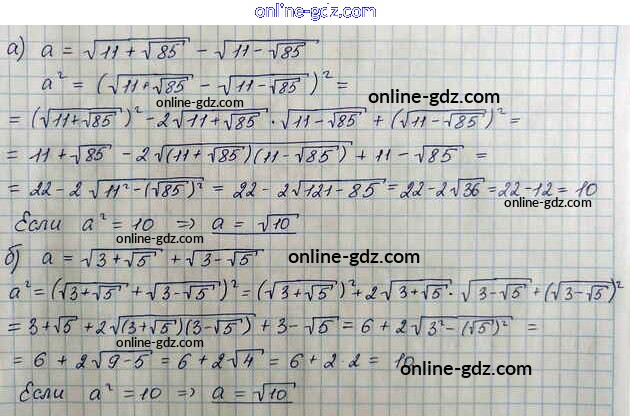 online-gdz.com
а) a = √(11 + √85) − √(11 − √85)
a² = (√(11+√85) − √(11−√85))² =
online-gdz.com online-gdz.com
= (√(11+√85))² − 2√(11+√85) · √(11−√85) + (√(11−√85))² =
= 11 + √85 − 2√((11+√85)(11−√85)) + 11 − √85 =
= 22 − 2√(11² − (√85)²) = 22 − 2√(121−85) = 22 − 2√36 = 22−12 = 10
online-gdz.com online-gdz.com
Если a² = 10 ⇒ a = √10
online-gdz.com
б) a = √(3+√5) + √(3−√5) online-gdz.com
a² = (√(3+√5) + √(3−√5))² = (√(3+√5))² + 2√(3+√5) · √(3−√5) + (√(3−√5))²
= 3+√5 + 2√((3+√5)(3−√5)) + 3−√5 = 6 + 2√(3² − (√5)²) =
= 6 + 2√(9−5) = 6 + 2√4 = 6 + 2·2 = 10
online-gdz.com online-gdz.com
Если a² = 10 ⇒ a = √10